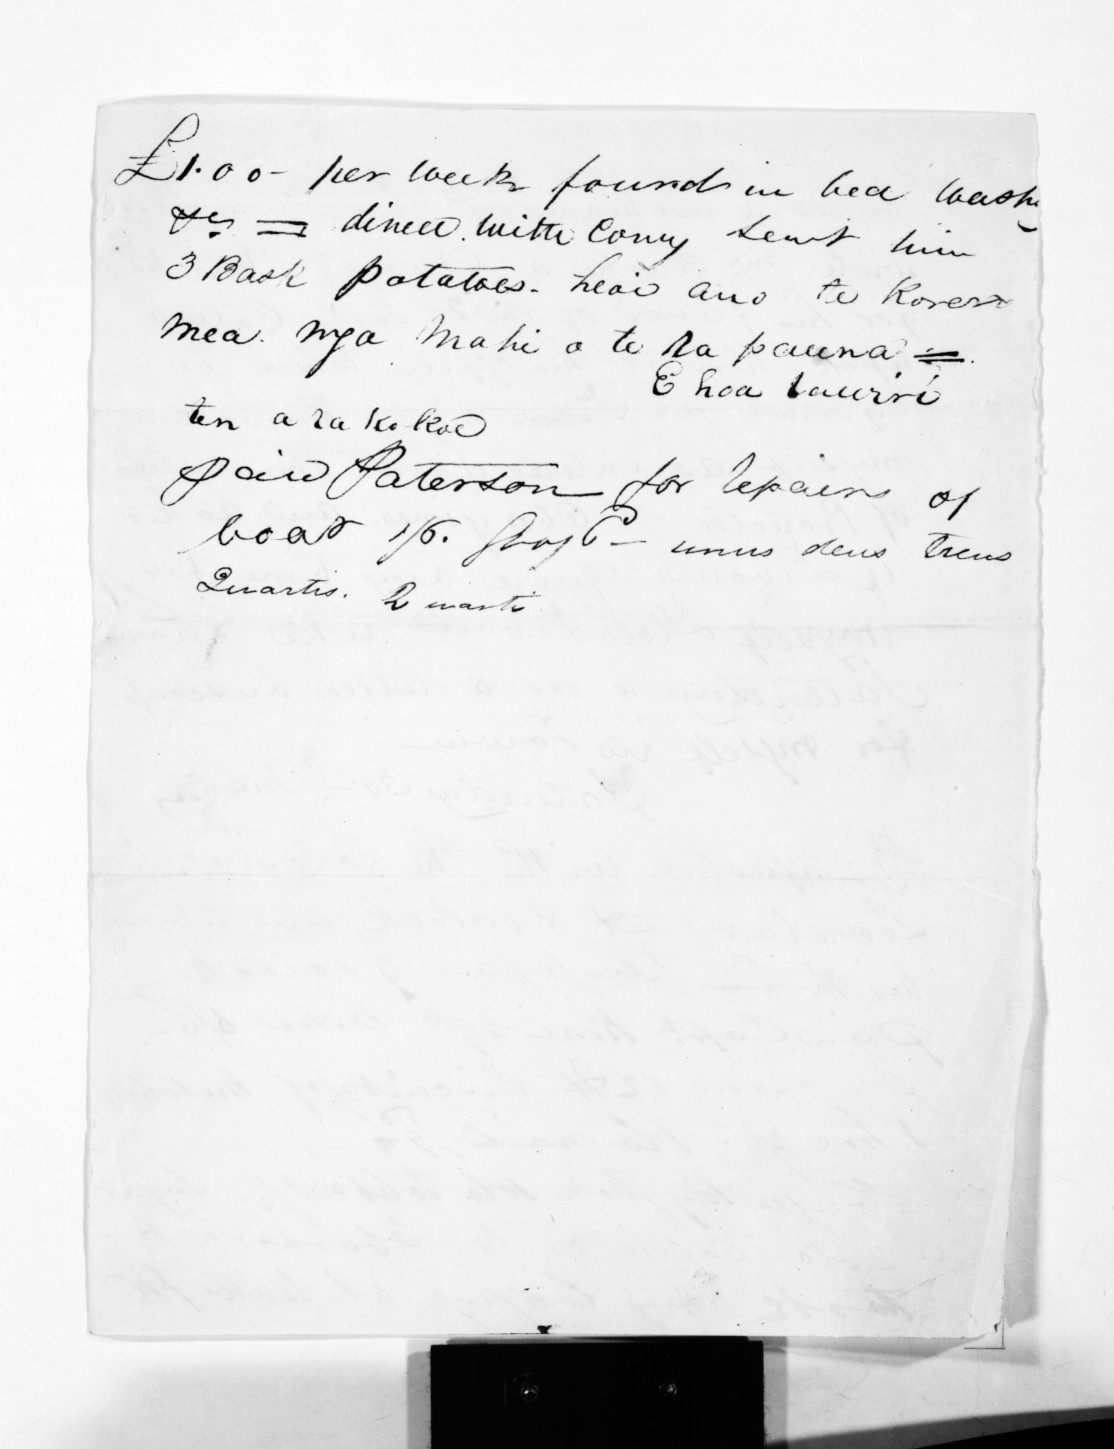 £1.00- per week found in bed washg
&c = dined. with Cony Sent him
3 Bask potatoes. heoi ano te korero
mea. nga mahi o te ra pauna =.
E hoa tawiri
ten a ra ko koe
paid Paterson for repairs of
boat 1/6. unus deus treus
Quartis. Quarti